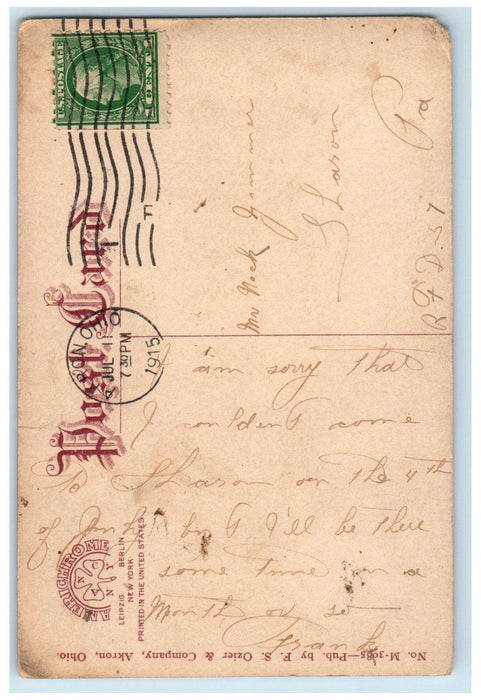 U.S. POSTAGE
1 CENT 1
Post Card
AKRON, OHIO
JUL 11
7 30 PM
1915
Mr Nick Zimmer
Sharon
Pa
R F D. 57
I am sorry that
I couldent come
To Sharon on the 4th
of July but I'll be there
some time in a
Month or so
Frank
AMERICHROME
N Y
LEIPZIG BERLIN
NEW YORK
PRINTED IN THE UNITED STATES
No. M-3085—Pub. by F. S. Ozier & Company, Akron, Ohio.